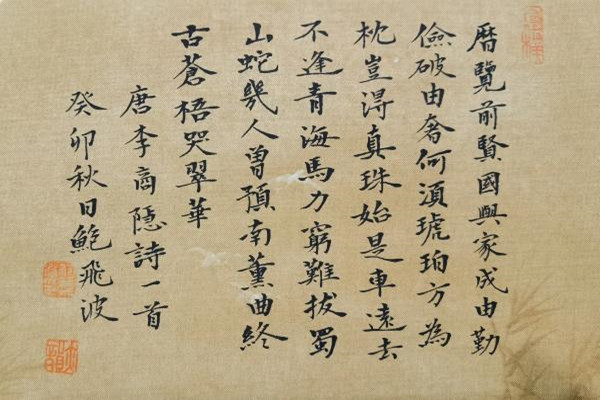 曆覽前賢國與家成由勤
儉破由奢何湏琥珀方為
枕豈淂真珠始是車遠去
不逢青海馬力窮難拔蜀
山蛇幾人曾預南薰曲終
古蒼梧哭翠華
唐李商隱詩一首
癸卯秋日鮑飛波